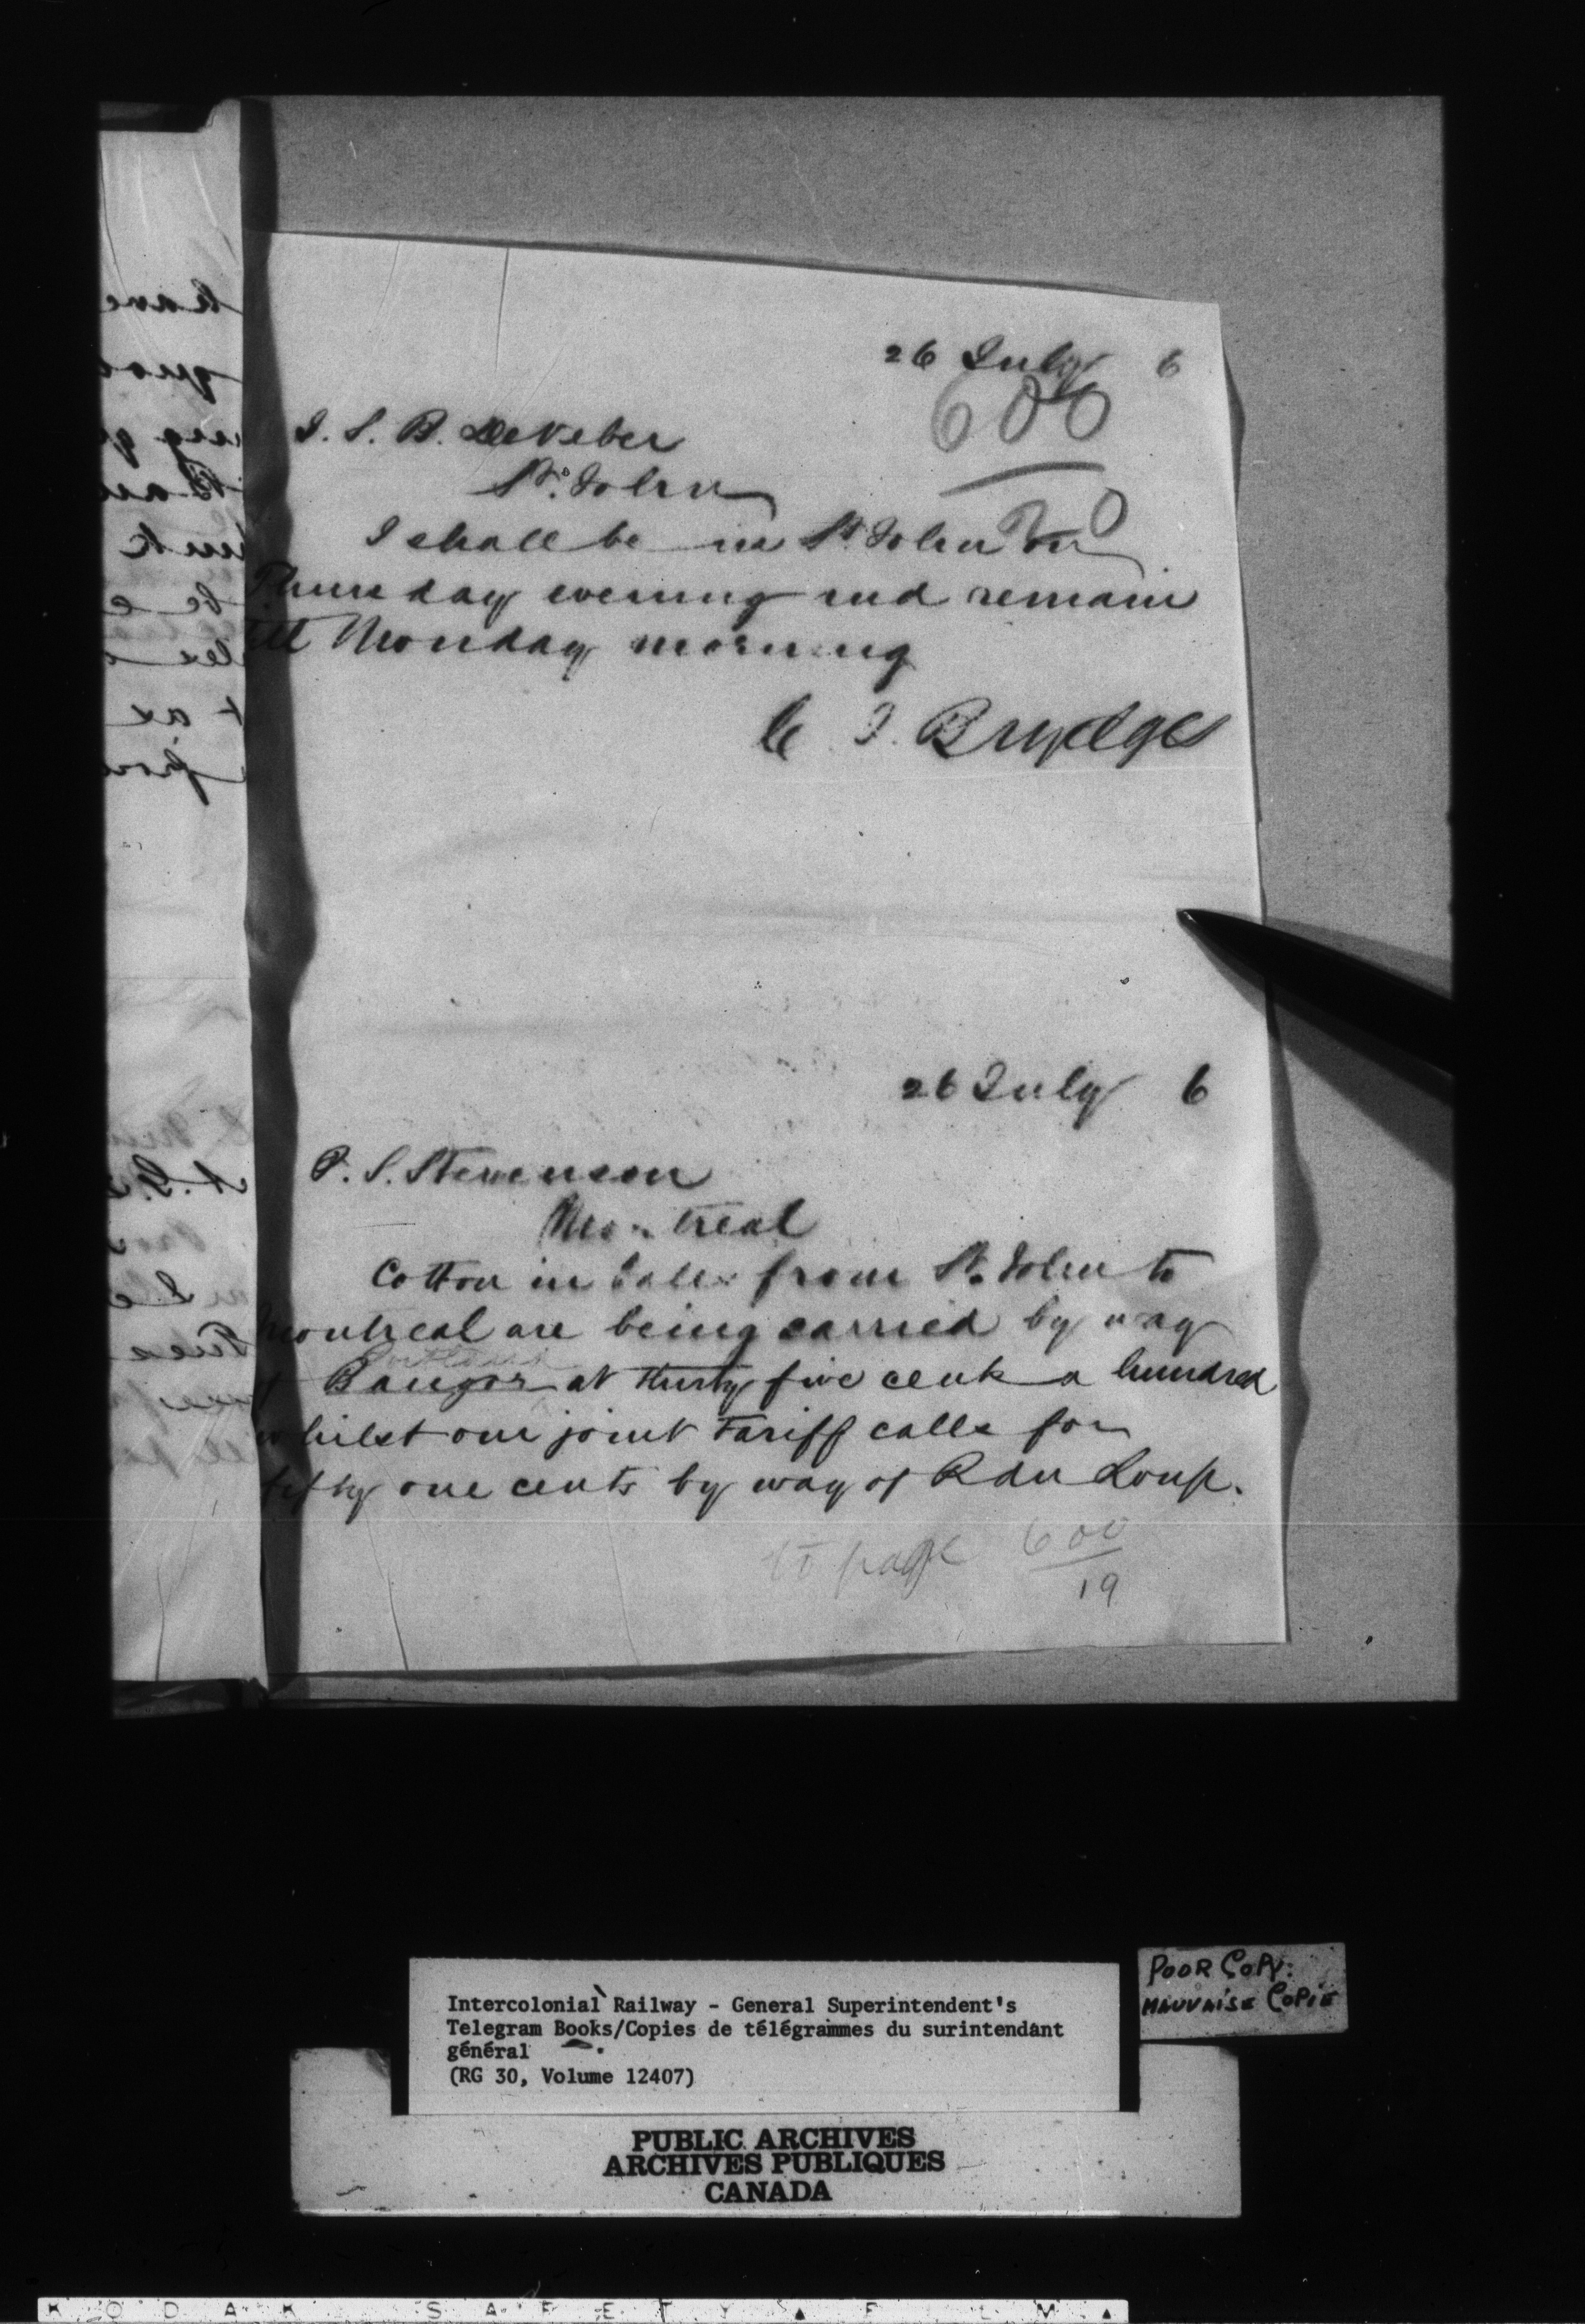 26 July 6
600
20
I. S. B. DeVeber
St. John
I shall be in St. John on
Thursday evening and remain
till Monday morning
C. J. Brydges
26 July 6
P. S. Stevenson
Montreal
Cotton in bales from St. John to
Montreal are being carried by way
Portland
of Bangor at thirty five cents a hundred
whilst our joint tariff calls for
fifty one cents by way of R du Loup.
page 600
19
Intercolonial Railway - General Superintendent's
Telegram Books/Copies de télégrammes du surintendant
général
(RG 30, Volume 12407)
POOR COPY.
MAUVAISE COPIE
PUBLIC ARCHIVES
ARCHIVES PUBLIQUES
CANADA
KODAK SAFETY FILM